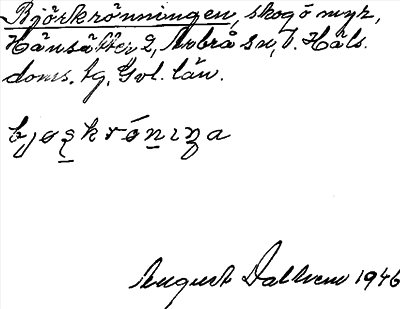 Björkrönningen, skog o myr,
Hänsätter 2, Arbrå sn, V. Häls.
doms. tg, Gvl. län.
bjøʂkrónɪŋa
August Dalhem 1946